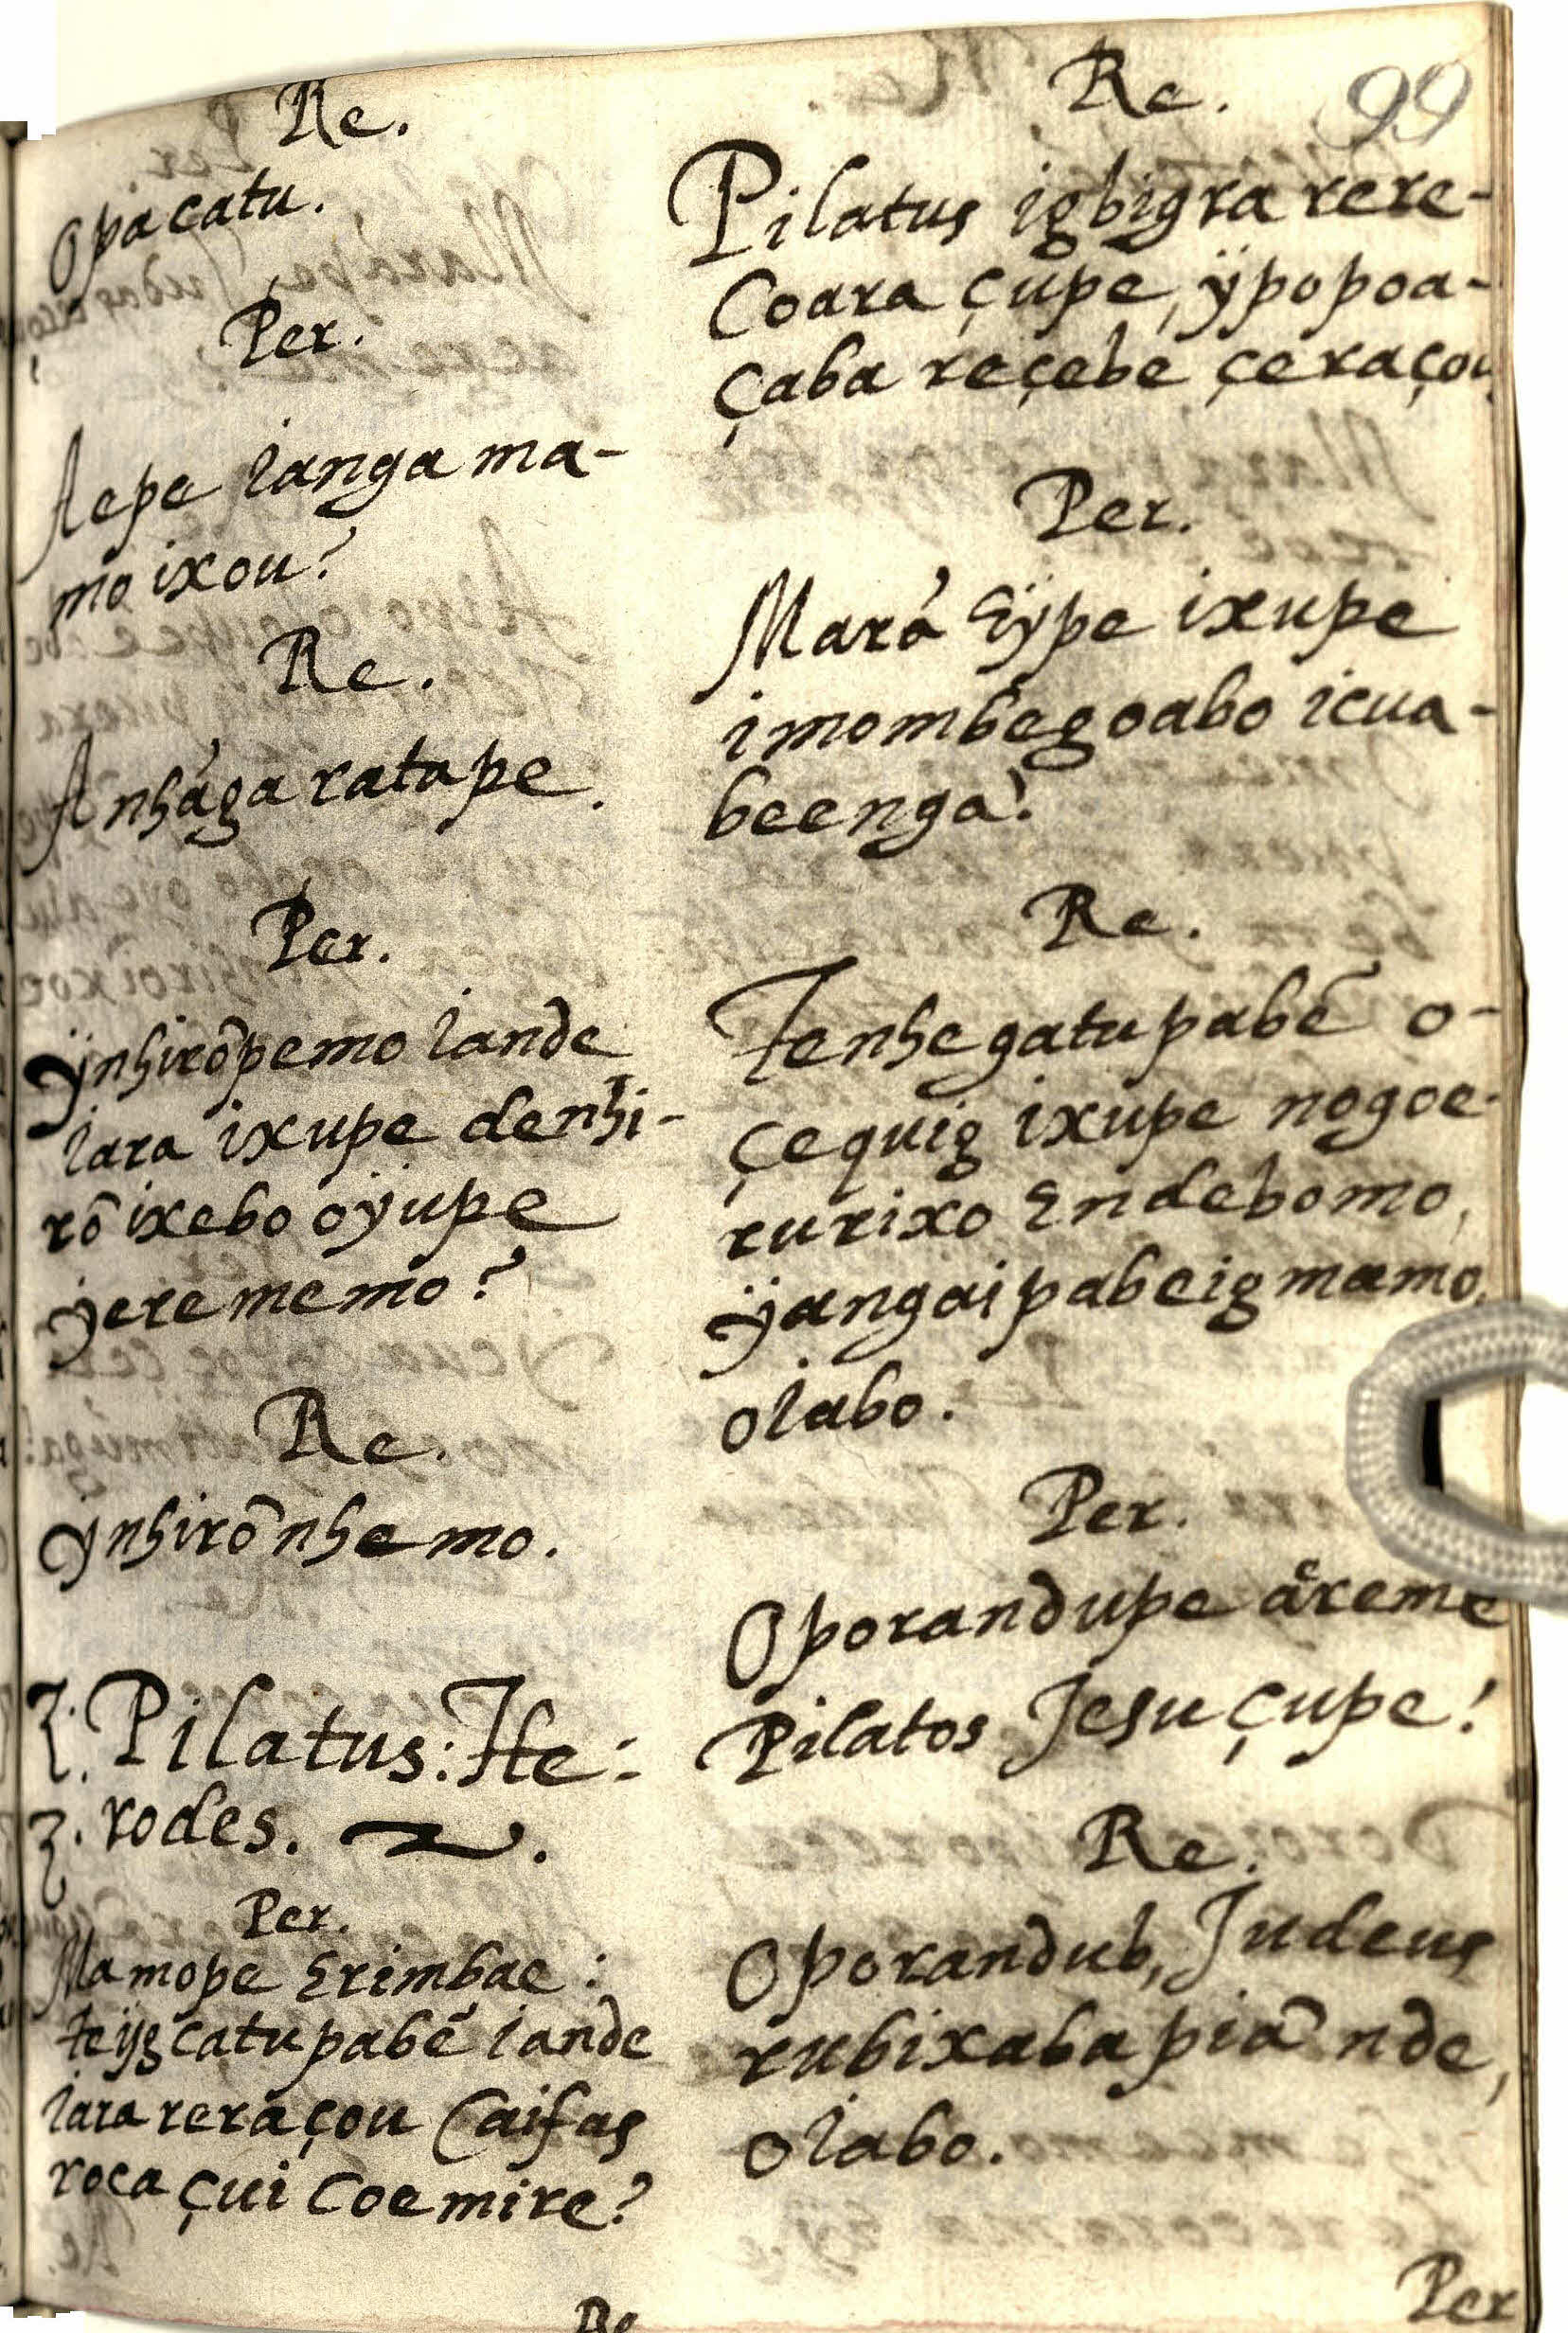 99
Re.
Opacatu.
Per.
Aepe ianga ma-
mo ixou?
Re.
Anhãga ratape.
Per.
ÿnhirõpemo iande
iara ixupe denhi-
rõ ixebo oÿupe
ÿerememo?
Re.
ÿnhirõnhemo.
Pilatus: He:
rodes.
Per.
Mamope Erimbae:
teijg catupabẽ iande
iara reraçou Caifas
roca çui Coemire?
Re
Re.
Pilatus igbigra rere-
Coara çupe, ÿpopoa-
çaba reçebe çeraçou
Per.
Marã Eÿpe ixupe
imombegoabo icua-
beenga?
Re.
Tenhegatupabẽ o-
çequig ixupe nogoe-
rurixo Endebomo,
ÿangaipabeigmamo,
oiabo.
Per.
Oporandupe ãreme
Pilatos Jesu çupe?
Re.
Oporandub, Judeus
rubixaba piã nde,
oiabo.
Per